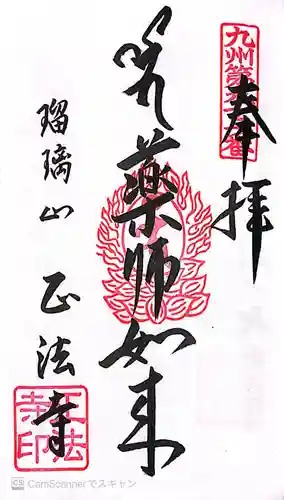 奉拝
九州第
番
薬師如来
瑠璃山 正法寺
正法
寺印
CS CamScannerでスキャン